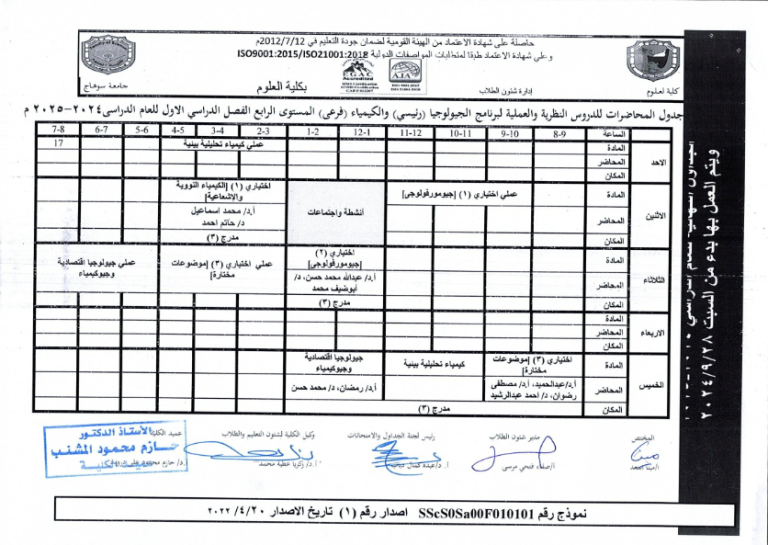 حاصلة على شهادة الاعتماد من الهيئة القومية لضمان جودة التعليم في 2012/7/12م
وعلى شهادة الاعتماد طبقا لمتطلبات المواصفات الدولية ISO9001:2015/ISO21001:2018
كلية العلوم
إدارة شئون الطلاب
EGAC
Accredited
AJA
بكلية العلوم
جامعة سوهاج
جدول المحاضرات للدروس النظرية والعملية لبرنامج الجيولوجيا (رئيسي) والكيمياء (فرعى) المستوى الرابع الفصل الدراسي الاول للعام الدراسى ٢٠٢٤-٢٠٢٥ م
الساعة 8-9 9-10 10-11 11-12 12-1 1-2 2-3 3-4 4-5 5-6 6-7 7-8
الاحد
المادة عملي كيمياء تحليلية بيئية 17
المحاضر
المكان
الاثنين
المادة عملي اختياري (١) [جيومورفولوجى] أنشطة واجتماعات اختياري (١) [الكيمياء النووية والاشعاعية]
المحاضر أ.د/ محمد اسماعيل د/ حاتم احمد
المكان مدرج (٣)
الثلاثاء
المادة اختياري (٢) [جيومورفولوجى] عملي اختياري (٣) [موضوعات مختارة] عملي جيولوجيا اقتصادية وجيوكيمياء
المحاضر أ.د/ عبدالله محمد حسن، د/ أبوضيف محمد
المكان مدرج (٣)
الاربعاء
المادة
المحاضر
المكان
الخميس
المادة اختياري (٣) [موضوعات مختارة] كيمياء تحليلية بيئية جيولوجيا اقتصادية وجيوكيمياء
المحاضر أ.د/عبدالحميد، أ.د/ مصطفى رضوان، د/ احمد عبدالرشيد أ.د/ رمضان، د/ محمد حسن
المكان مدرج (٣)
ويتم العمل بها بدء من السبت ٢٠٢٤/٩/٢٨
المختص
مدير شئون الطلاب
رئيس لجنة الجداول والامتحانات
وكيل الكلية لشئون التعليم والطلاب
عميد الكلية
أ/صفاء فتحي مرسي
أ.د/ زكريا عطية محمد
الأستاذ الدكتور
حازم محمود المشنب
عميد الكلية
نموذج رقم SScS0Sa00F010101 اصدار رقم (١) تاريخ الاصدار ٢٠٢٢/٤/٢٠